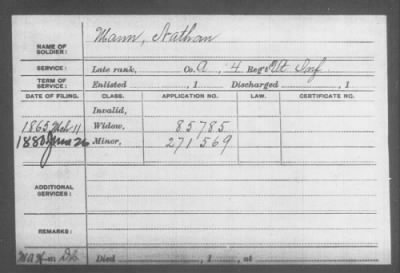 NAME OF SOLDIER: Mann, Nathan
SERVICE: Late rank, Co. A, 4 Reg't Vt Inf.
TERM OF SERVICE: Enlisted , 1 Discharged , 1
DATE OF FILING. CLASS. APPLICATION NO. LAW. CERTIFICATE NO.
Invalid,
1865 Mch 11 Widow, 85785
1880 June 26 Minor, 271569
ADDITIONAL SERVICES:
REMARKS:
Died , 1 , at